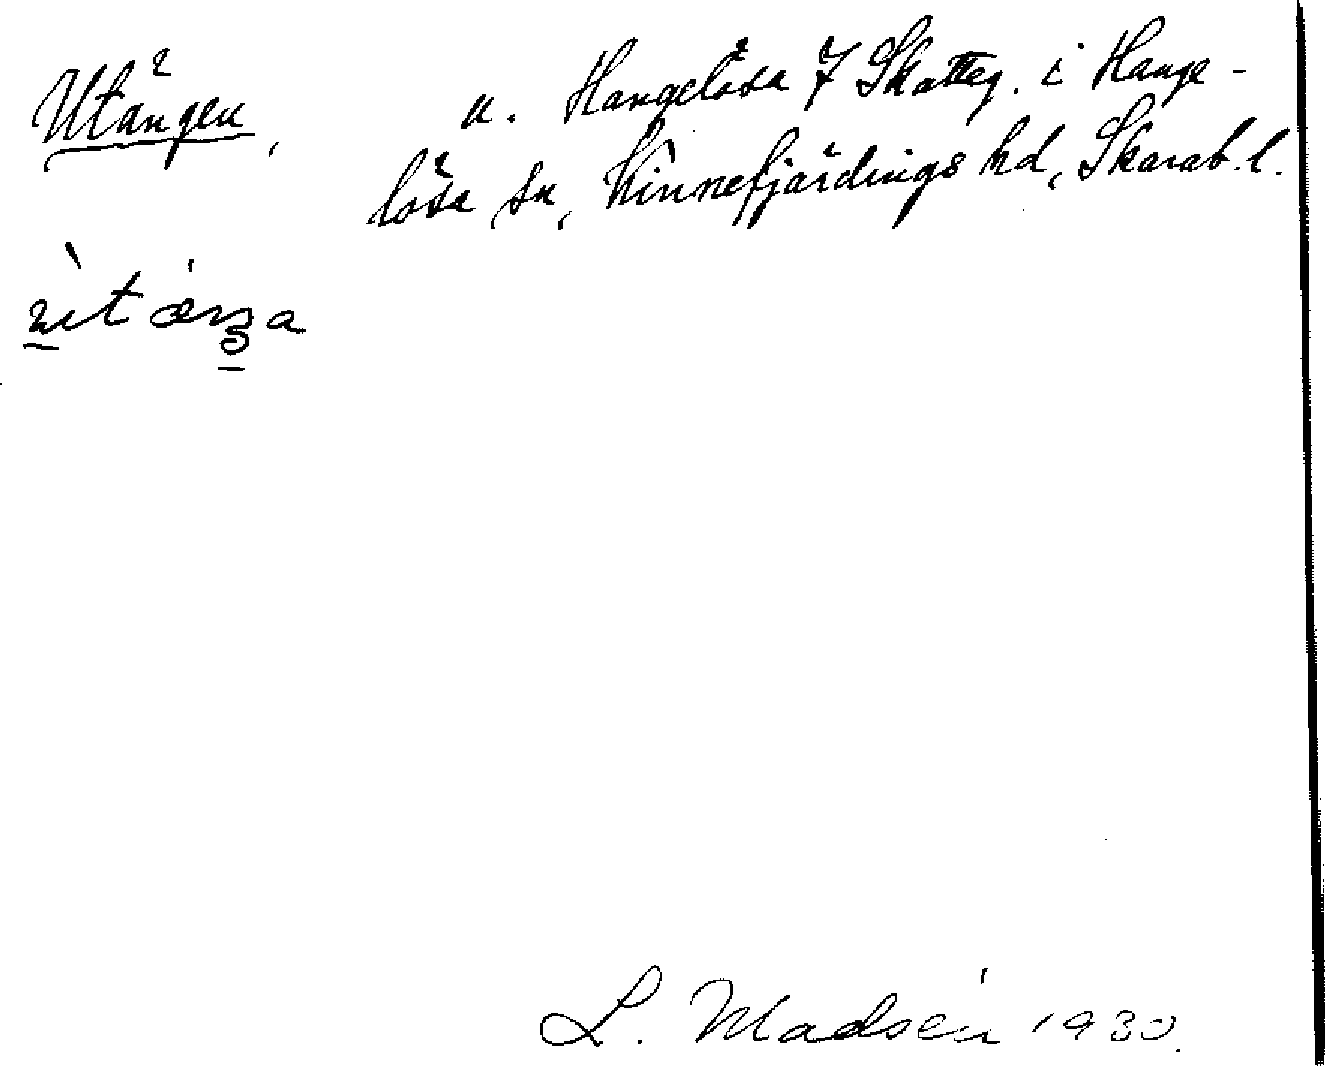 Utängen, u. Hangelösa 7 Skatteg. i Hange-
lösa sn, Kinnefjärdings hd, Skarab. l.
L. Madsén 1930.